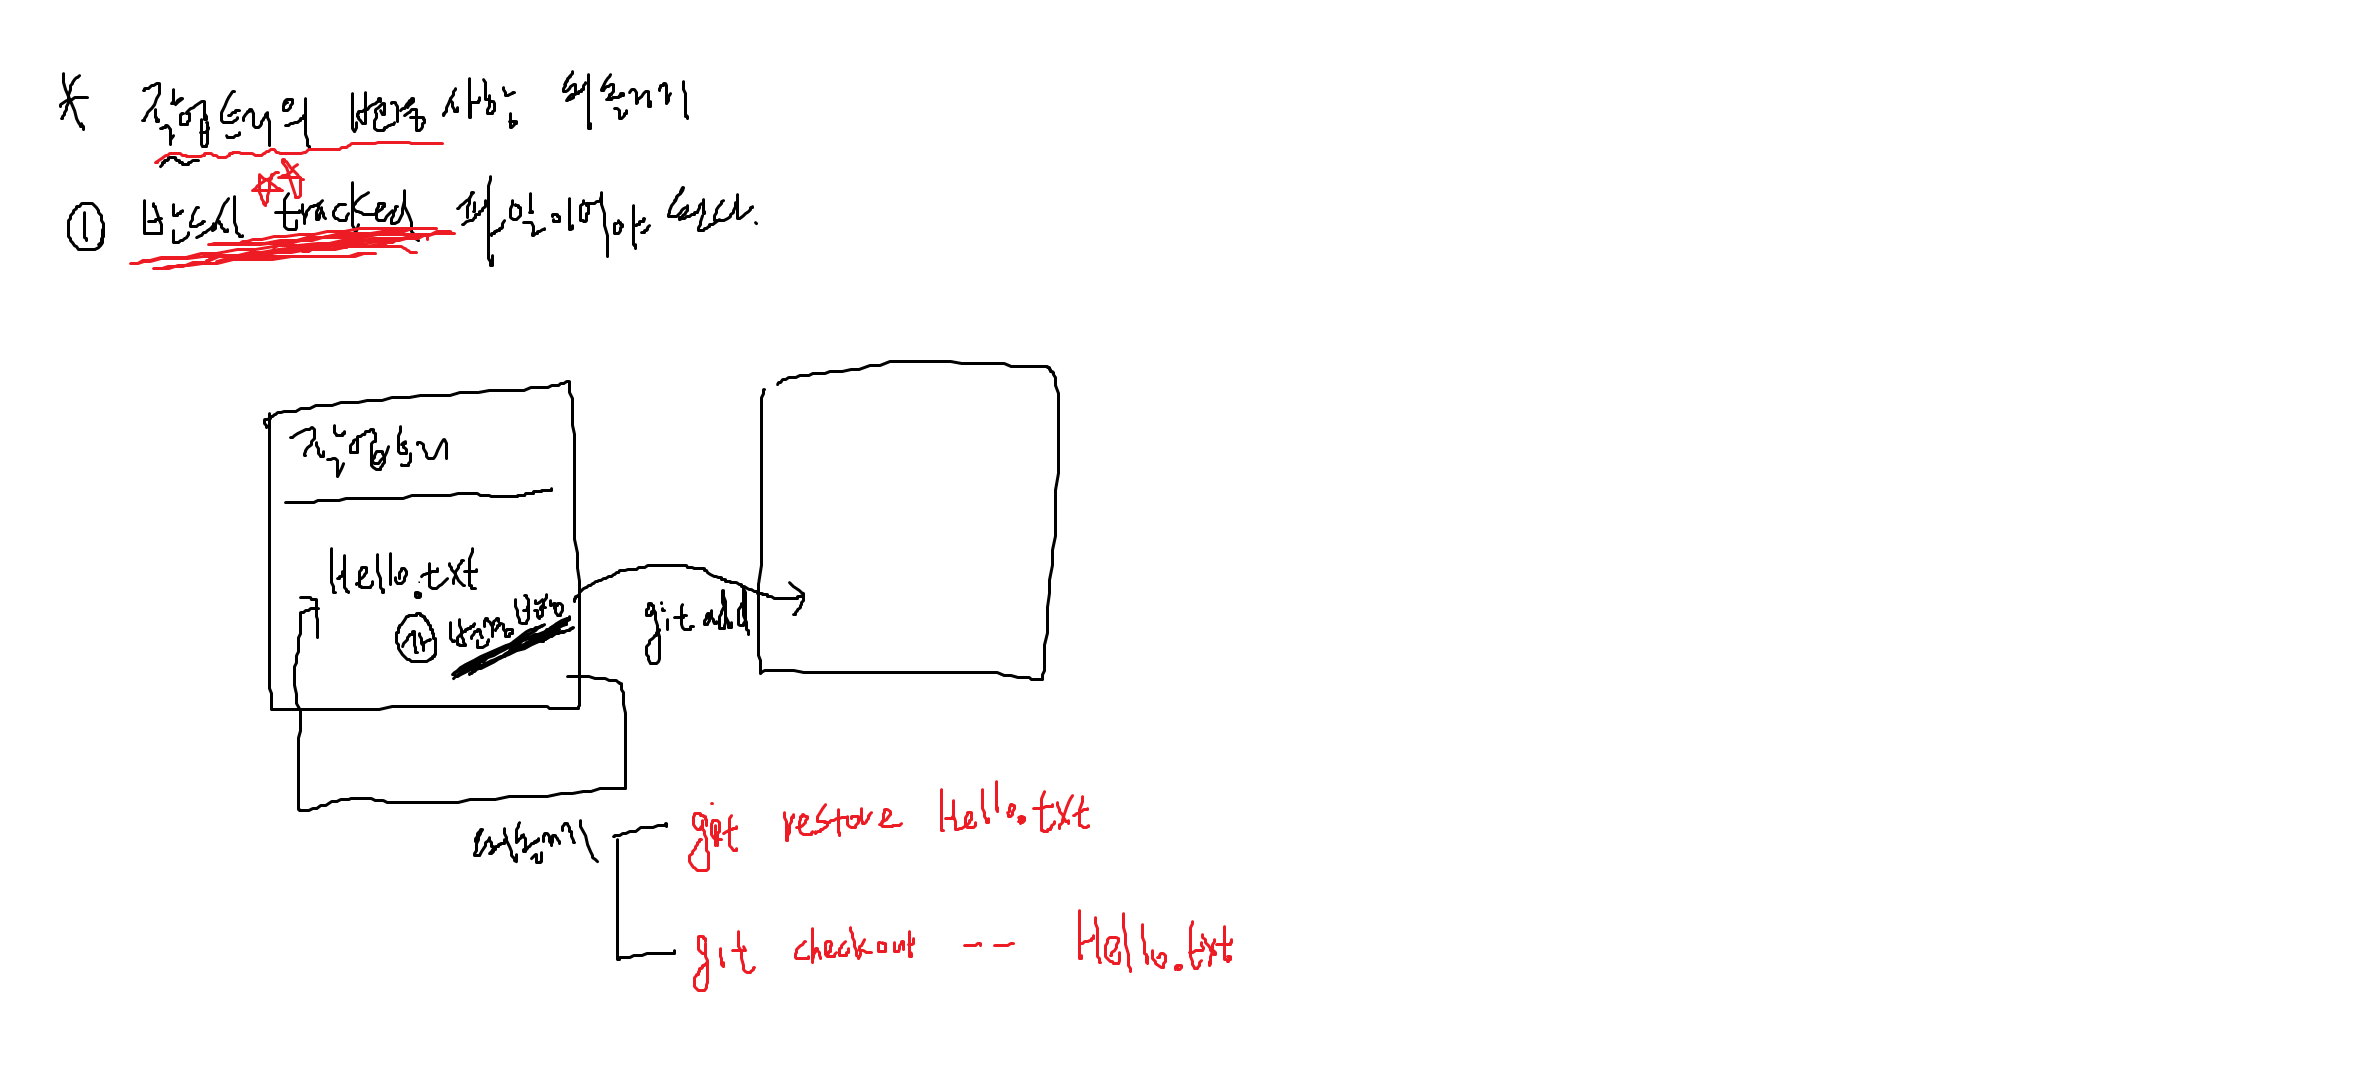 * 작업트리의 변동 사항 되돌리기
① 반드시 tracked 파일이어야 된다.
작업트리
Hello.txt
㉮ 변동 발생
git add
되돌리기
git restore Hello.txt
git checkout -- Hello.txt